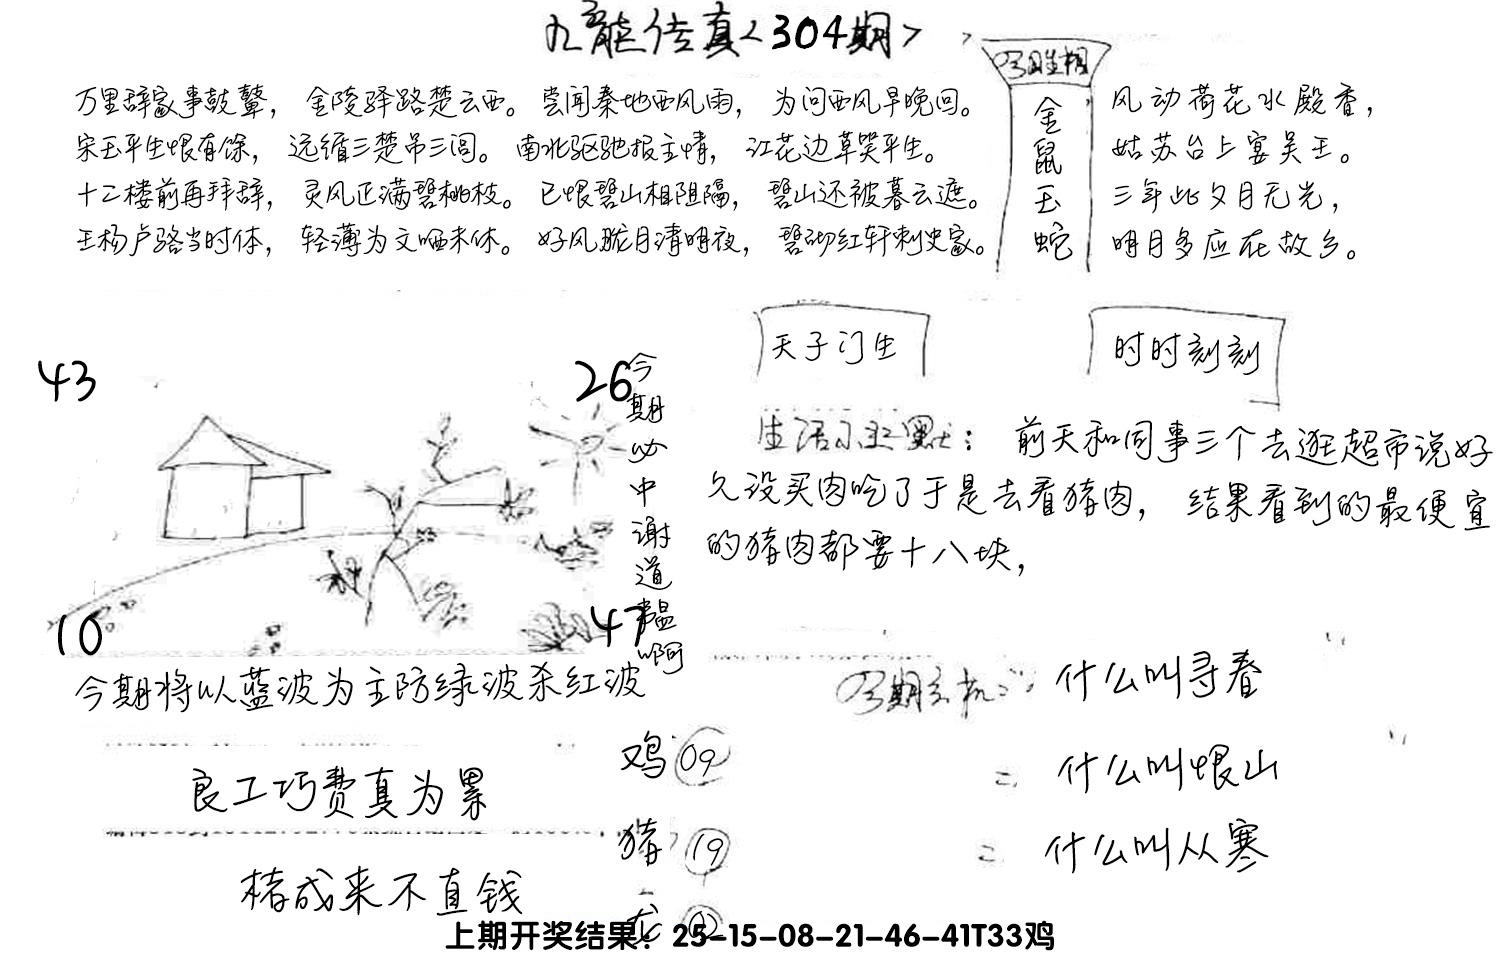 九龙传真<304期>
今期生相
金鼠玉蛇
万里辞家事鼓鼙，金陵驿路楚云西。尝闻秦地西风雨，为问西风早晚回。
宋玉平生恨有馀，远循三楚吊三闾。南北驱驰报主情，江花边草笑平生。
十二楼前再拜辞，灵风正满碧桃枝。已恨碧山相阻隔，碧山还被暮云遮。
王杨卢骆当时体，轻薄为文哂未休。好风胧月清明夜，碧砌红轩刺史家。
风动荷花水殿香，
姑苏台上宴吴王。
三年此夕月无光，
明月多应在故乡。
天子门生
时时刻刻
43
26
10
47
今期必中谢道韫啊
生活小幽默：前天和同事三个去逛超市说好
久没买肉吃了于是去看猪肉，结果看到的最便宜
的猪肉都要十八块，
今期将以蓝波为主防绿波杀红波
今期玄机一：什么叫寻春
二 什么叫恨山
二 什么叫从寒
鸡 09
猪 19
龙 02
良工巧费真为累
楮成来不直钱
上期开奖结果：25-15-08-21-46-41T33鸡